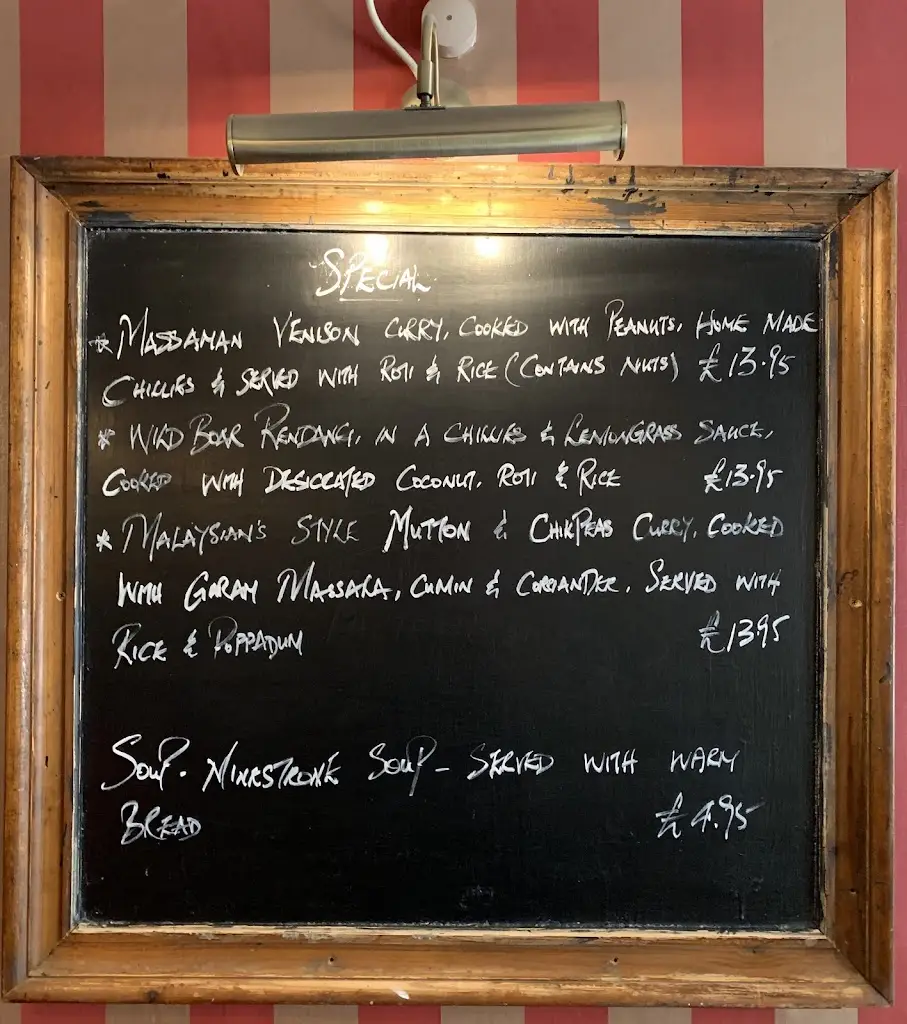 SPECIAL
* MASSAMAN VENISON CURRY, COOKED WITH PEANUTS, HOME MADE
CHILLIES & SERVED WITH ROTI & RICE (CONTAINS NUTS) £13.95
* WILD BOAR RENDANG, IN A CHILLIES & LEMONGRASS SAUCE,
COOKED WITH DESICCATED COCONUT, ROTI & RICE £13.95
* MALAYSIAN'S STYLE MUTTON & CHIKPEAS CURRY, COOKED
WITH GARAM MASSALA, CUMIN & CORIANDER, SERVED WITH
RICE & POPPADUM £1395
SOUP. MINESTRONE SOUP - SERVED WITH WARM
BREAD £4.95